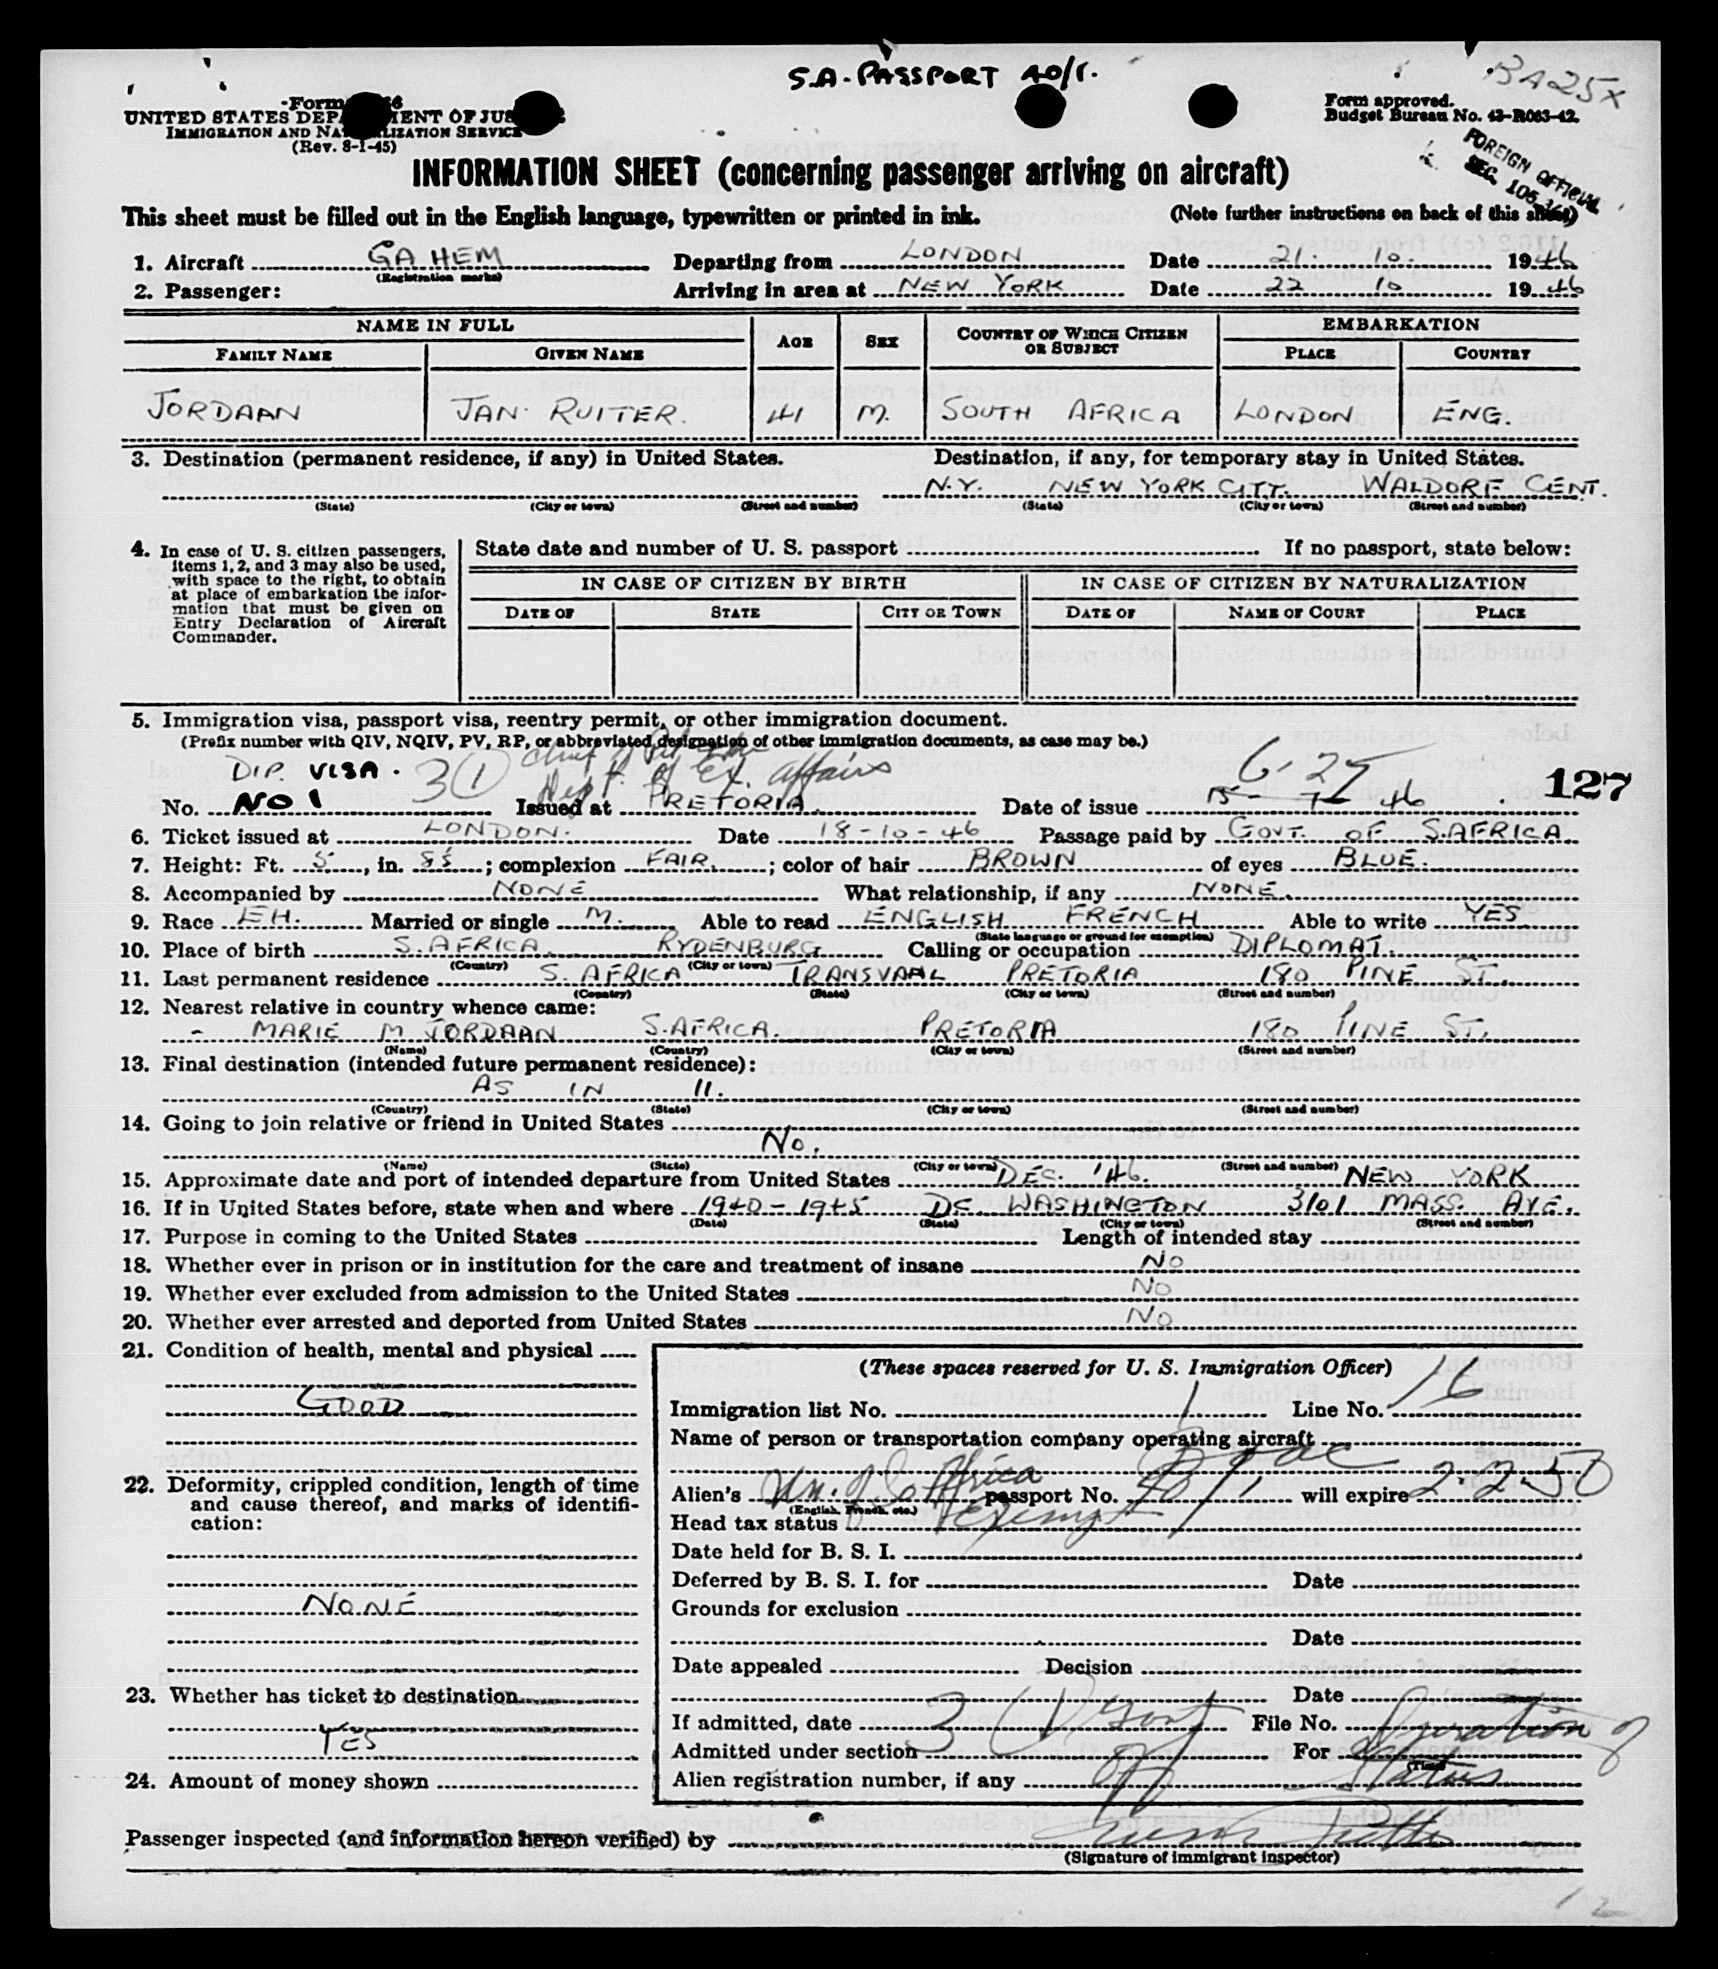 S.A. PASSPORT 40/1.
BA25X
Form
UNITED STATES DEPARTMENT OF JUSTICE
IMMIGRATION AND NATURALIZATION SERVICE
(Rev. 8-1-45)
Form approved.
Budget Bureau No. 43-R063-42.
FOREIGN OFFICIAL
SEC.
INFORMATION SHEET (concerning passenger arriving on aircraft)
This sheet must be filled out in the English language, typewritten or printed in ink. (Note further instructions on back of this sheet)
1. Aircraft GAHEM Departing from LONDON Date 21. 10. 1946
(Registration marks)
2. Passenger: Arriving in area at NEW YORK Date 22 10 1946
NAME IN FULL AGE SEX COUNTRY OF WHICH CITIZEN OR SUBJECT EMBARKATION
FAMILY NAME GIVEN NAME PLACE COUNTRY
JORDAAN JAN RUITER. 41 M. SOUTH AFRICA LONDON ENG.
3. Destination (permanent residence, if any) in United States. Destination, if any, for temporary stay in United States.
N.Y. NEW YORK CITY. WALDORF CENT.
(State) (City or town) (Street and number) (State) (City or town) (Street and number)
4. In case of U. S. citizen passengers,
items 1, 2, and 3 may also be used,
with space to the right, to obtain
at place of embarkation the infor-
mation that must be given on
Entry Declaration of Aircraft
Commander.
State date and number of U. S. passport If no passport, state below:
IN CASE OF CITIZEN BY BIRTH IN CASE OF CITIZEN BY NATURALIZATION
DATE OF STATE CITY OR TOWN DATE OF NAME OF COURT PLACE
5. Immigration visa, passport visa, reentry permit, or other immigration document.
(Prefix number with QIV, NQIV, PV, RP, or abbreviated designation of other immigration documents, as case may be.)
DIP. VISA. 3(1) Chief of
Dept. of Ex. Affairs 6-25 127
No. NO 1 Issued at PRETORIA. Date of issue 15-7-46
6. Ticket issued at LONDON. Date 18-10-46 Passage paid by GOVT. OF S.AFRICA
7. Height: Ft. 5, in. ; complexion FAIR. ; color of hair BROWN of eyes BLUE.
8. Accompanied by NONE What relationship, if any NONE.
9. Race EH. Married or single M. Able to read ENGLISH FRENCH Able to write YES
(State language or ground for exemption)
10. Place of birth S.AFRICA. RYDENBURG Calling or occupation DIPLOMAT.
(Country) (City or town)
11. Last permanent residence S. AFRICA TRANSVAAL PRETORIA 180 PINE ST.
(Country) (State) (City or town) (Street and number)
12. Nearest relative in country whence came:
- MARIE M JORDAAN S.AFRICA. PRETORIA 180 PINE ST.
(Name) (Country) (City or town) (Street and number)
13. Final destination (intended future permanent residence):
AS IN 11.
(Country) (State) (City or town) (Street and number)
14. Going to join relative or friend in United States
No.
(Name) (State) (City or town) (Street and number)
15. Approximate date and port of intended departure from United States DEC. '46. NEW YORK
16. If in United States before, state when and where 1940-1945 DC WASHINGTON 3101 MASS. AVE.
(Date) (State) (City or town) (Street and number)
17. Purpose in coming to the United States Length of intended stay
18. Whether ever in prison or in institution for the care and treatment of insane No
19. Whether ever excluded from admission to the United States No
20. Whether ever arrested and deported from United States No
21. Condition of health, mental and physical
GOOD
22. Deformity, crippled condition, length of time
and cause thereof, and marks of identifi-
cation:
NONE
23. Whether has ticket to destination
YES
24. Amount of money shown
(These spaces reserved for U. S. Immigration Officer)
Immigration list No. 1 Line No. 16
Name of person or transportation company operating aircraft
Alien's Un. of S Africa passport No. 40/1, will expire 2-2-50
(English, French, etc.)
Head tax status exempt
Date held for B. S. I.
Deferred by B. S. I. for Date
Grounds for exclusion
Date
Date appealed Decision
Date
If admitted, date File No.
Admitted under section 3(1) Govt Off For Duration of Status
(Time)
Alien registration number, if any
Passenger inspected (and information hereon verified) by
(Signature of immigrant inspector)
12